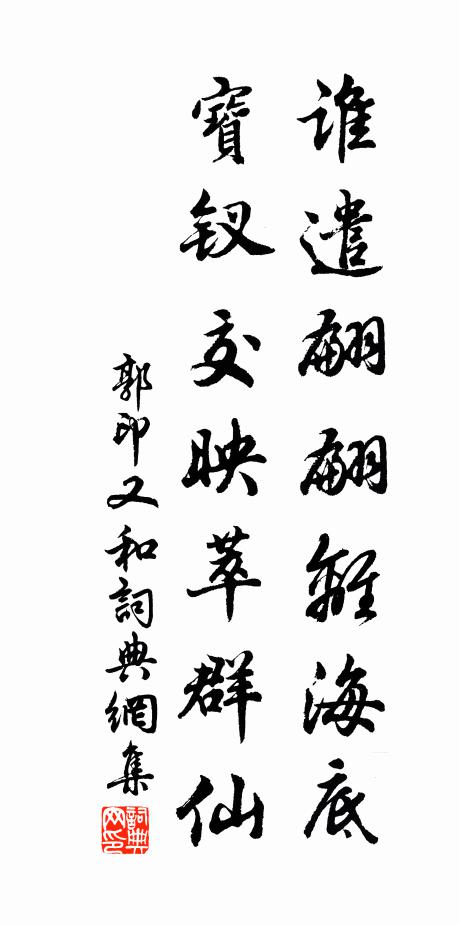 誰遣翩翩離海底
寶釵交映萃群仙
郭印又和詞典網集
詞典网印